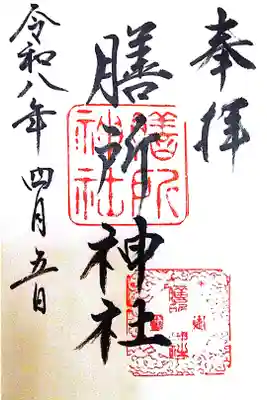 奉拝
膳所神社
膳所神社
令和八年四月五日